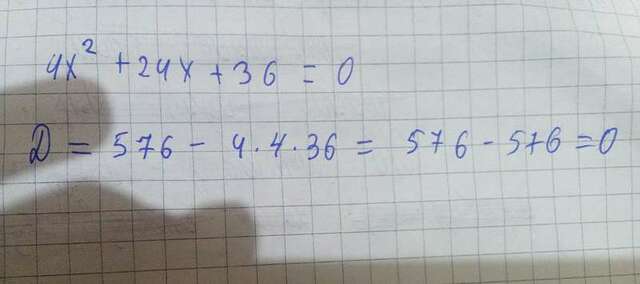 4x² + 24x + 36 = 0
D = 576 - 4·4·36 = 576 - 576 = 0